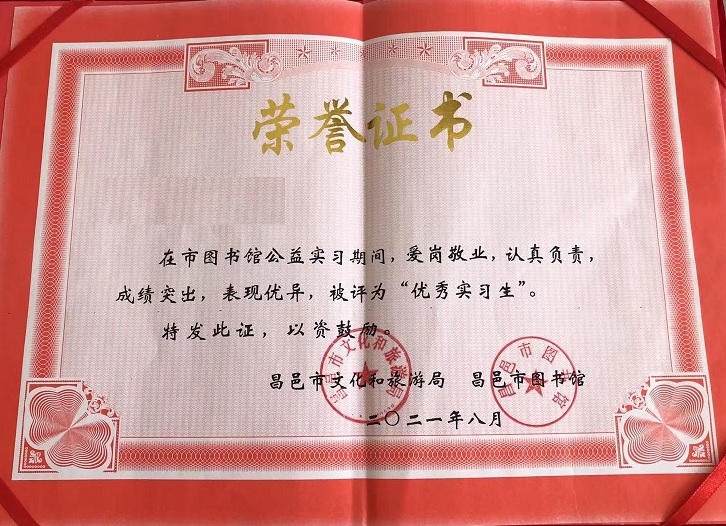 荣誉证书
在市图书馆公益实习期间，爱岗敬业，认真负责，
成绩突出，表现优异，被评为“优秀实习生”。
特发此证，以资鼓励。
昌邑市文化和旅游局 昌邑市图书馆
二〇二一年八月
昌邑市文化和旅游局
昌邑市图书馆